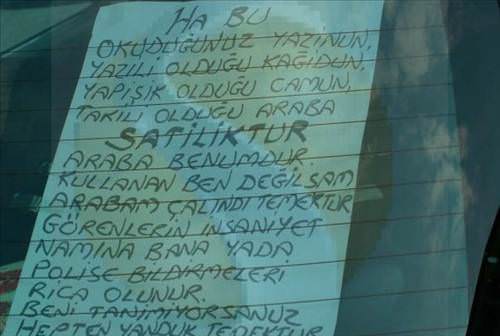 HA BU
OKUDUĞUNUZ YAZİNUN,
YAZILI OLDUĞU KAĞIDUN,
YAPIŞIK OLDUĞU CAMUN,
TAKILI OLDUĞU ARABA
SATILIKTUR
ARABA BENUMDUR.
KULLANAN BEN DEĞİLSAM
ARABAM ÇALINDI TEMEKTUR
GÖRENLERİN INSANİYET
NAMINA BANA YADA
POLİSE BİLDİRMELERİ
RİCA OLUNUR.
BENİ TANIMIYORSANUZ
HEPTEN YANDUK TEMEKTUR